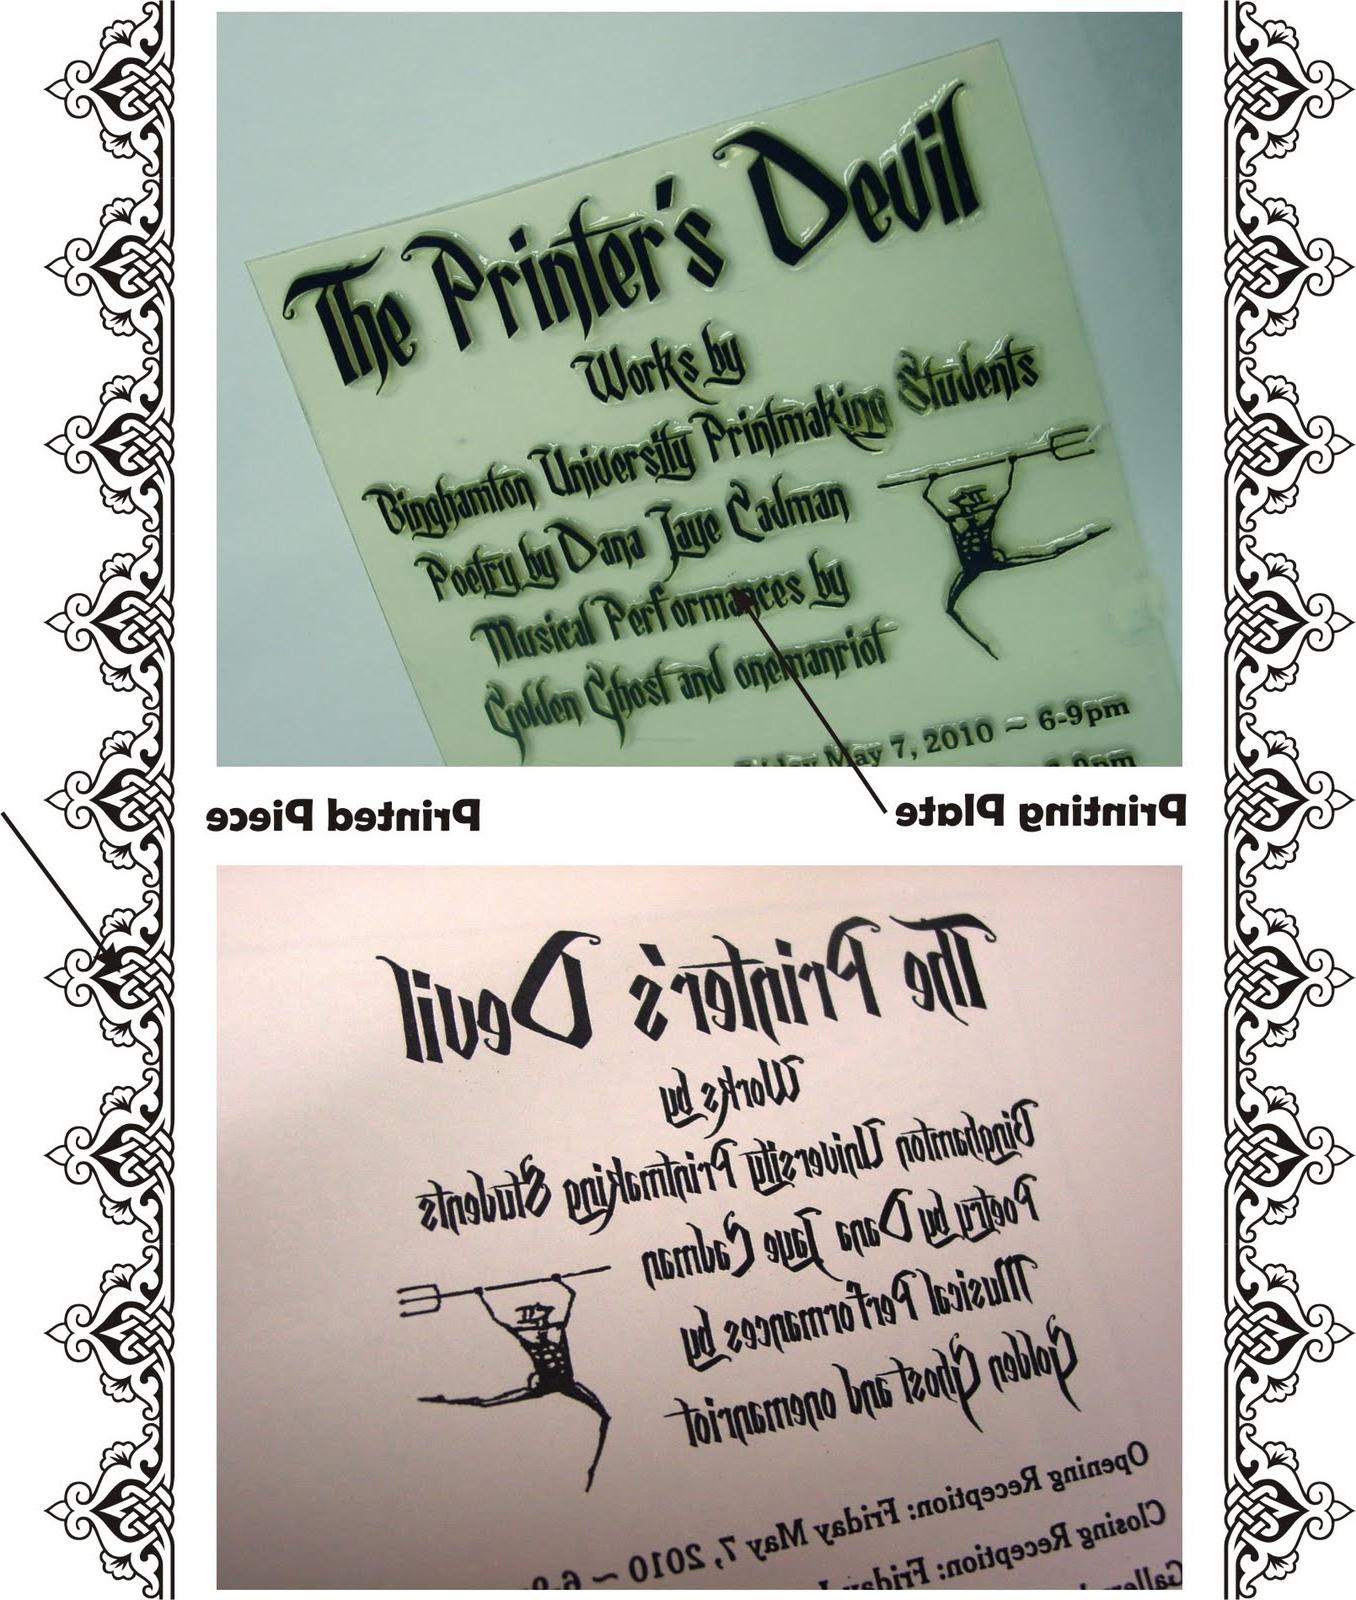 The Printer's Devil
Works by
Binghamton University Printmaking Students
Poetry by Dana Jaye Cadman
Musical Performances by
Golden Ghost and onemanriot
Friday May 7, 2010 ~ 6-9pm
6-9pm
Printed Piece
Printing Plate
The Printer's Devil
Works by
Binghamton University Printmaking Students
Poetry by Dana Jaye Cadman
Musical Performances by
Golden Ghost and onemanriot
Opening Reception: Friday May 7, 2010 ~ 6-9
Closing Reception: Friday